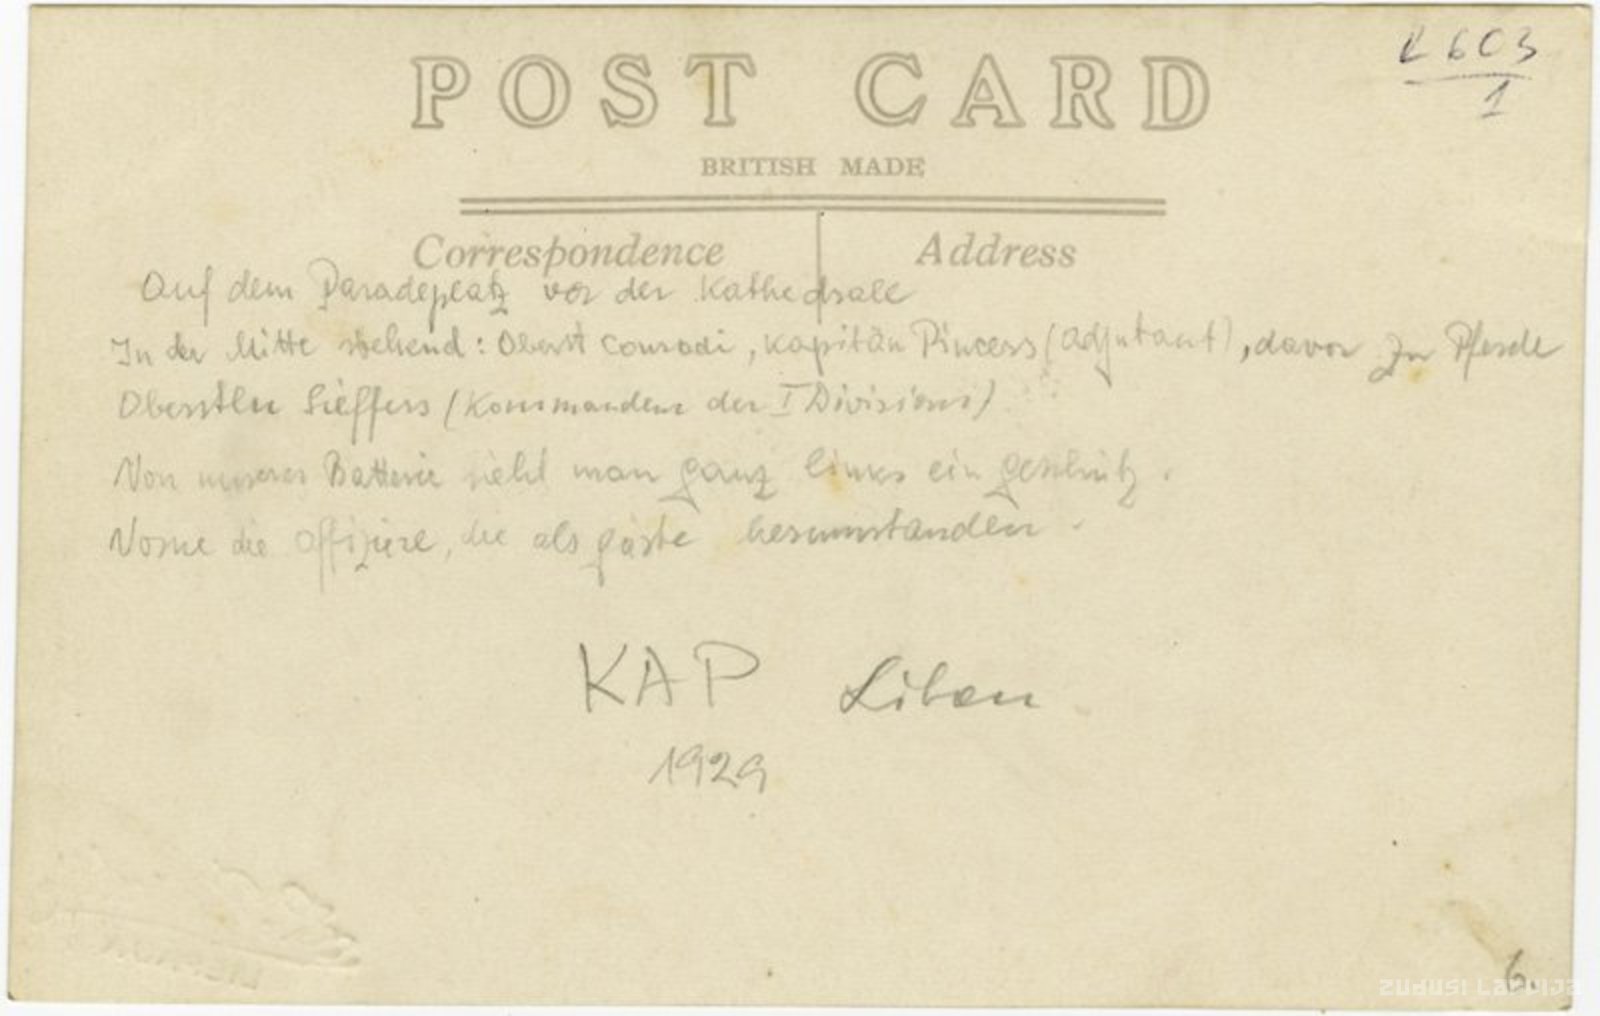 L 603
1
POST CARD
BRITISH MADE
Correspondence Address
Auf dem Paradeplatz vor der Kathedrale
In der Mitte stehend: Oberst Conradi, Kapitän Pincers (Adjutant), davor zu Pferde
Oberstltn Sieffers (Kommandeur der I Division)
Von unserer Batterie sieht man ganz links ein Geschütz.
Vorne die Offiziere, die als Gäste herumstanden.
KAP Libau
1929
6.
ZUDUSI LATVIJA